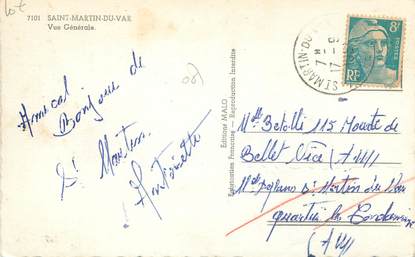 7101 SAINT-MARTIN-DU-VAR
Vue Générale.
Amical
Bonjour de
St Martin
Antoinette
Editions MALO
Fabrication Française — Reproduction Interdite
ST MARTIN-DU
8F
RF
115 Route de
Bellet Nice (A M)
St Martin du Var
quartier les
(A M)